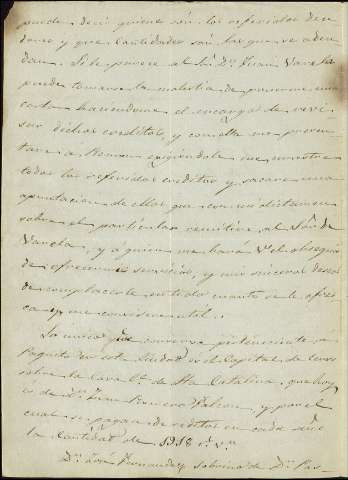 puede decir quienes són los referidos deu-
dores y que Cantidades són las que se adeu-
dan. Si le parece al Sr. Dn. Juan Varela
puede tomarse la molestia de ponerme una
carta haciendome el encargo de revi-
sar dichos creditos, y con ella me presen-
tare á Ramon exigiendole me muestre
todos los referidos creditos y sacare una
apuntacion de ellos que con mi dictamen
sobre el particular remitire al Sor. de
Varela, y á quien me hará V. el obsequio
de ofrecerme servicios, y mis sinceros deseos
de complacerle en todo cuanto se le ofrez-
ca y me considere util.
Lo unico que conserva perteneciente á
Paquita en esta Ciudad es el Capital de Censo
sobre la Casa Ce. de Sta. Catalina, que hoy
és de Dn. Juan Romero, y por el
cual se pagan de reditos en cada año
la Cantidad de 1918 rs. vn.
Dn. José Fernandez Sobrino de Dn.